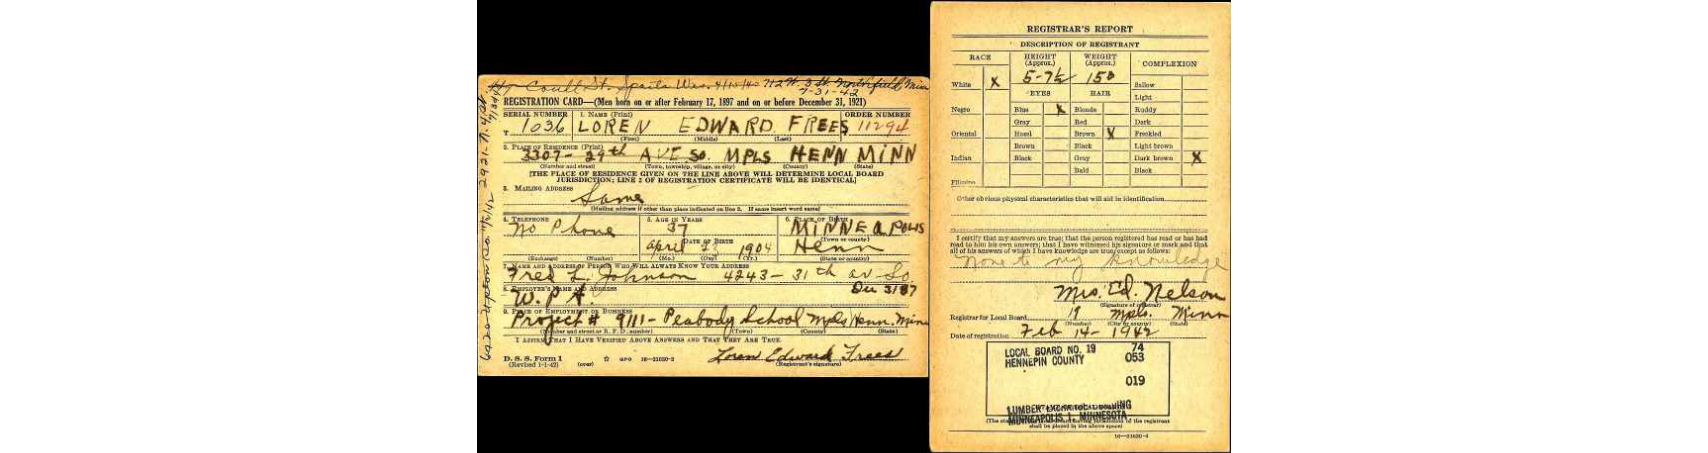 Coull St. Sparta Wis. 9/15/42 712 W. 3 St. Northfield, Min
7-31-42
REGISTRATION CARD—(Men born on or after February 17, 1897 and on or before December 31, 1921)
SERIAL NUMBER 1. NAME (Print) ORDER NUMBER
T 1036 LOREN EDWARD FREES 11294
(First) (Middle) (Last)
2. PLACE OF RESIDENCE (Print)
3307-29th AVE SO. MPLS HENN MINN
(Number and street) (Town, township, village, or city) (County) (State)
[THE PLACE OF RESIDENCE GIVEN ON THE LINE ABOVE WILL DETERMINE LOCAL BOARD
JURISDICTION; LINE 2 OF REGISTRATION CERTIFICATE WILL BE IDENTICAL]
3. MAILING ADDRESS
Same
(Mailing address if other than place indicated on line 2. If same insert word same)
4. TELEPHONE 5. AGE IN YEARS 6. PLACE OF BIRTH
No Phone 37 MINNEAPOLIS
DATE OF BIRTH (Town or county)
April 23 1904 Henn
(Exchange) (Number) (Mo.) (Day) (Yr.) (State or country)
7. NAME AND ADDRESS OF PERSON WHO WILL ALWAYS KNOW YOUR ADDRESS
Fred L. Johnson 4243-31th av-So
8. EMPLOYER'S NAME AND ADDRESS
W.P.A. Du 3187
9. PLACE OF EMPLOYMENT OR BUSINESS
Project # 9111-Peabody School Mpls Henn. Minn
(Number and street or R. F. D. number) (Town) (County) (State)
I AFFIRM THAT I HAVE VERIFIED ABOVE ANSWERS AND THAT THEY ARE TRUE.
D. S. S. Form 1 GPO 16—21630-2 Loren Edward Frees
(Revised 1-1-42) (over) (Registrant's signature)
REGISTRAR'S REPORT
DESCRIPTION OF REGISTRANT
RACE HEIGHT (Approx.) WEIGHT (Approx.) COMPLEXION
5-7½ 150
White X EYES HAIR Sallow
Light
Negro Blue X Blonde Ruddy
Gray Red Dark
Oriental Hazel Brown X Freckled
Brown Black Light brown
Indian Black Gray Dark brown X
Bald Black
Filipino
Other obvious physical characteristics that will aid in identification
I certify that my answers are true; that the person registered has read or has had
read to him his own answers; that I have witnessed his signature or mark and that
all of his answers of which I have knowledge are true, except as follows:
None to my knowledge
Mrs. Ed. Nelson
(Signature of registrar)
Registrar for Local Board 19 Mpls. Minn
(Number) (City or county) (State)
Date of registration Feb 14-1942
LOCAL BOARD NO. 19 74
HENNEPIN COUNTY 053
019
LUMBER EXCHANGE BUILDING
MINNEAPOLIS 1, MINNESOTA
of the registrant
shall be placed in the above space)
16—21630-2